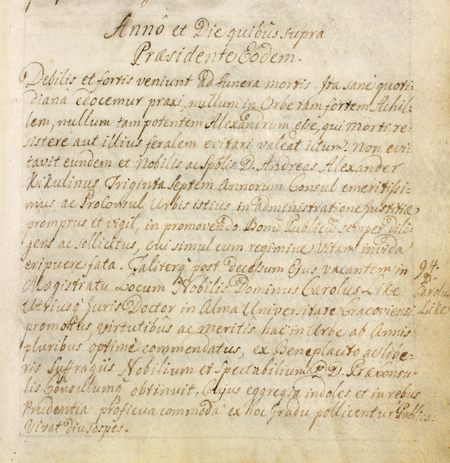 Annô et Die quibus supra
Præsidente Eodem.
Debilis et fortis veniunt ad funera mortis. Ita sanè quoti-
diana edocemur praxi, nullum in Orbe tam fortem Achil-
lem, nullum tam potentem Alexandrum esse, qui Morti re-
sistere aut illius feralem evitari valeat ictum. Non evi-
tavit eundem et Nobilis ac Spblis D. Andreas Alexander
Kikulinus, Triginta Septem Annorum Consul emeritissi-
mus ac ProConsul Urbis istius in administratione Justitiæ
promptus et vigil, in promovendo Bono Publico semper dili-
gens ac sollicitus, cui simul cum regimine Vitam invida
eripuere fata. Taliterq post decessum Ejus, vacantem in
Magistratu Locum Nobilis Dominus Carolus Like
Utriusq Juris Doctor in Alma Universitate Cracoviensi
promotus, virtutibus ac meritis hac in Urbe ab Annis
pluribus optimè commendatus, ex Beneplacito ac libe-
ris Suffragiis Nobilium et Spectabilium D.D. Præconsu-
lis Consulumq obtinuit, Cujus egregia indoles et in rebus
Prudentia proficua commoda ex hoc Gradu pollicentur Publico.
Vivat diu sospes.
94.
D.
Carolus
Like